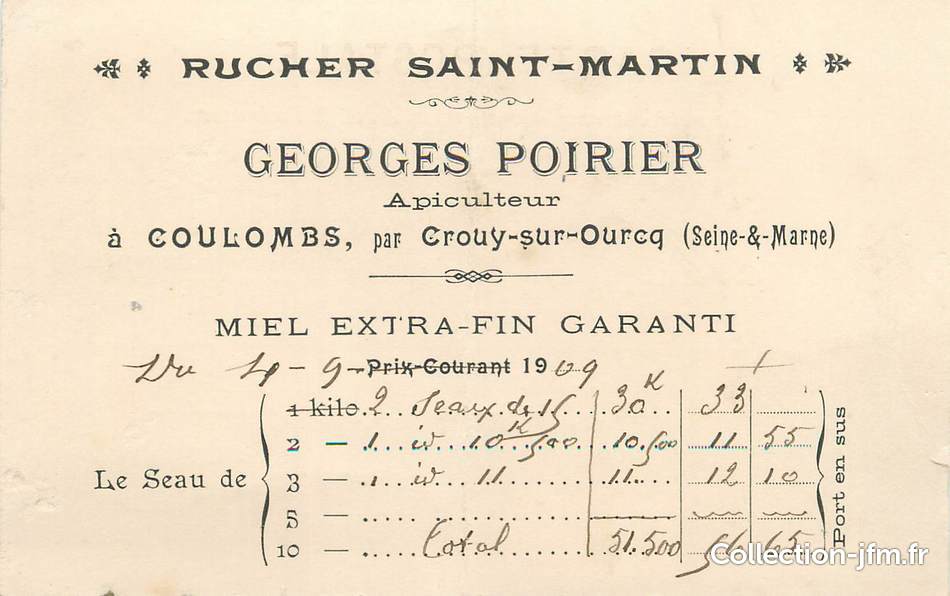 RUCHER SAINT-MARTIN
GEORGES POIRIER
Apiculteur
à COULOMBS, par Crouy-sur-Ourcq (Seine-&-Marne)
MIEL EXTRA-FIN GARANTI
Du 4-9- Prix-Courant 1909
Le Seau de
1 kilo 2 Seaux de 15 30 K 33
2 — 1 id 10 K 500 10.500 11 55
3 — 1 id 11 11 12 10
5 —
10 — Total 51.500 56 65
Port en sus
Collection-jfm.fr